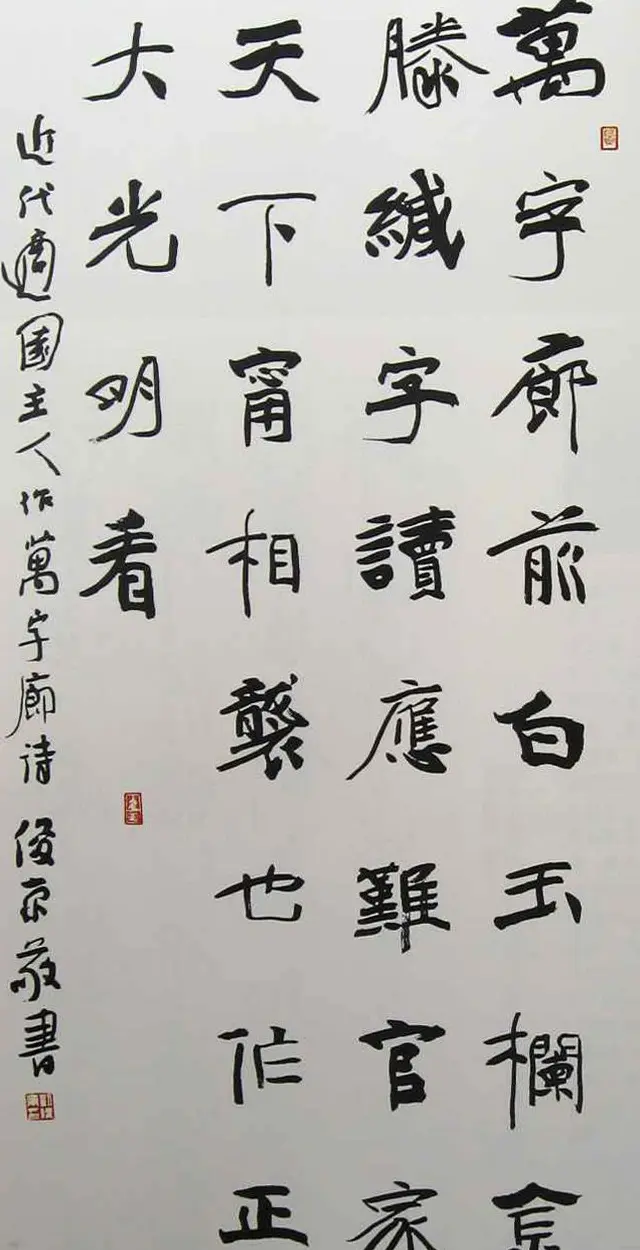 萬字廊前白玉欄金
滕緘字讀應難官家
天下甯相襲也作正
大光明看
近代適園主人作萬字廊詩 俊京敬書